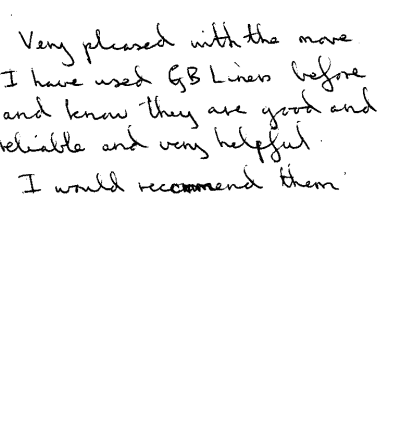 Very pleased with the move
I have used GB Liners before
and know they are good and
reliable and very helpful.
I would recommend them